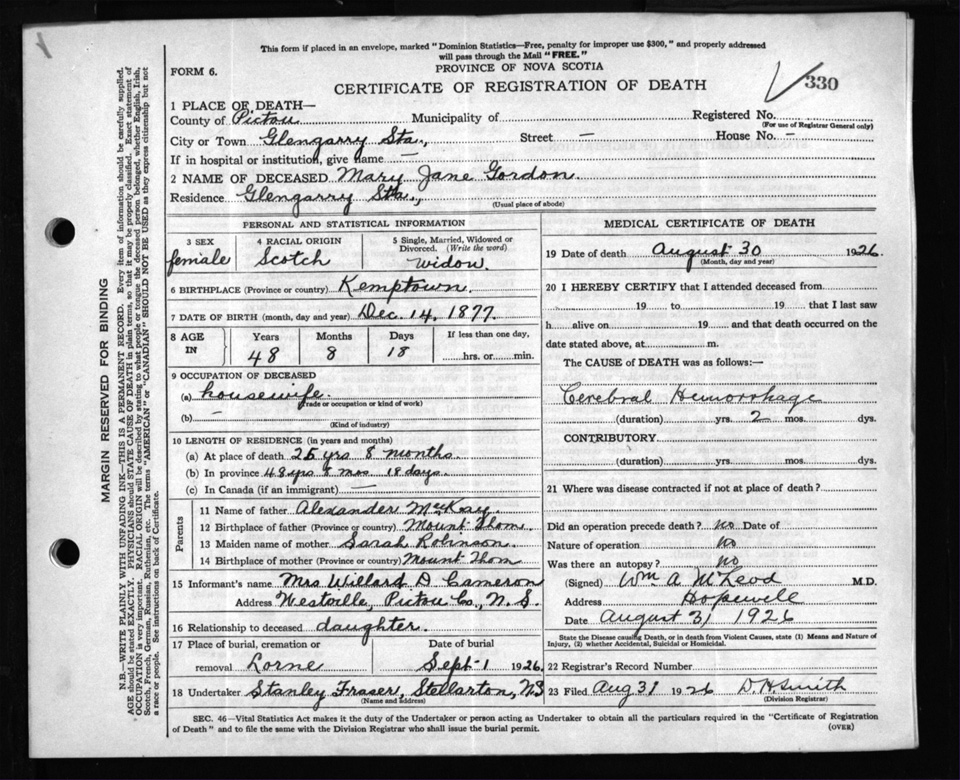 This form if placed in an envelope, marked "Dominion Statistics—Free, penalty for improper use $300," and properly addressed
will pass through the Mail "FREE."
FORM 6.
PROVINCE OF NOVA SCOTIA
CERTIFICATE OF REGISTRATION OF DEATH
330
1 PLACE OF DEATH—
County of Pictou Municipality of Registered No.
(For use of Registrar General only)
City or Town Glengarry Sta., Street — House No. —
If in hospital or institution, give name —
2 NAME OF DECEASED Mary Jane Gordon.
Residence Glengarry Sta.,
(Usual place of abode)
PERSONAL AND STATISTICAL INFORMATION
3 SEX
female
4 RACIAL ORIGIN
Scotch
5 Single, Married, Widowed or
Divorced. (Write the word)
widow.
6 BIRTHPLACE (Province or country) Kemptown.
7 DATE OF BIRTH (month, day and year) Dec. 14, 1877.
8 AGE
IN
Years
48
Months
8
Days
18
If less than one day,
hrs. or min.
9 OCCUPATION OF DECEASED
(a) housewife.
(Trade or occupation or kind of work)
(b) —
(Kind of industry)
10 LENGTH OF RESIDENCE (in years and months)
(a) At place of death 25 yrs 8 months
(b) In province 48 yrs 8 mos 18 days.
(c) In Canada (if an immigrant) —
Parents
11 Name of father Alexander McKay
12 Birthplace of father (Province or country) Mount Thom
13 Maiden name of mother Sarah Robinson
14 Birthplace of mother (Province or country) Mount Thom
15 Informant's name Mrs Willard D Cameron
Address Westville, Pictou Co., N.S.
16 Relationship to deceased daughter.
17 Place of burial, cremation or
removal Lorne
Date of burial
Sept 1 1926.
18 Undertaker Stanley Fraser, Stellarton, NS
(Name and address)
MEDICAL CERTIFICATE OF DEATH
19 Date of death August 30 1926.
(Month, day and year)
20 I HEREBY CERTIFY that I attended deceased from
19 to 19 that I last saw
h alive on 19 and that death occurred on the
date stated above, at m.
The CAUSE of DEATH was as follows:—
Cerebral Hemorrhage
(duration) yrs. 2 mos. dys.
CONTRIBUTORY
(duration) yrs. mos. dys.
21 Where was disease contracted if not at place of death?
Did an operation precede death? no Date of
Nature of operation no
Was there an autopsy? no
(Signed) Wm A McLeod M.D.
Address Hopewell
Date August 31 1926
State the Disease causing Death, or in death from Violent Causes, state (1) Means and Nature of
Injury, (2) whether Accidental, Suicidal or Homicidal.
22 Registrar's Record Number
23 Filed Aug 31 1926 D. H. Smith
(Division Registrar)
SEC. 46—Vital Statistics Act makes it the duty of the Undertaker or person acting as Undertaker to obtain all the particulars required in the "Certificate of Registration
of Death" and to file the same with the Division Registrar who shall issue the burial permit.
(OVER)
MARGIN RESERVED FOR BINDING
N.B.—WRITE PLAINLY WITH UNFADING INK—THIS IS A PERMANENT RECORD. Every item of information should be carefully supplied.
AGE should be stated EXACTLY. PHYSICIANS should STATE CAUSE OF DEATH in plain terms, so that it may be properly classified. Exact statement of
OCCUPATION is very important. RACIAL ORIGIN will be described by stating to what people or tongue the deceased person belonged, whether English, Irish,
Scotch, French, German, Russian, Ruthenian, etc. The terms "AMERICAN" or "CANADIAN" SHOULD NOT BE USED as they express citizenship but not
a race or people. See instructions on back of Certificate.